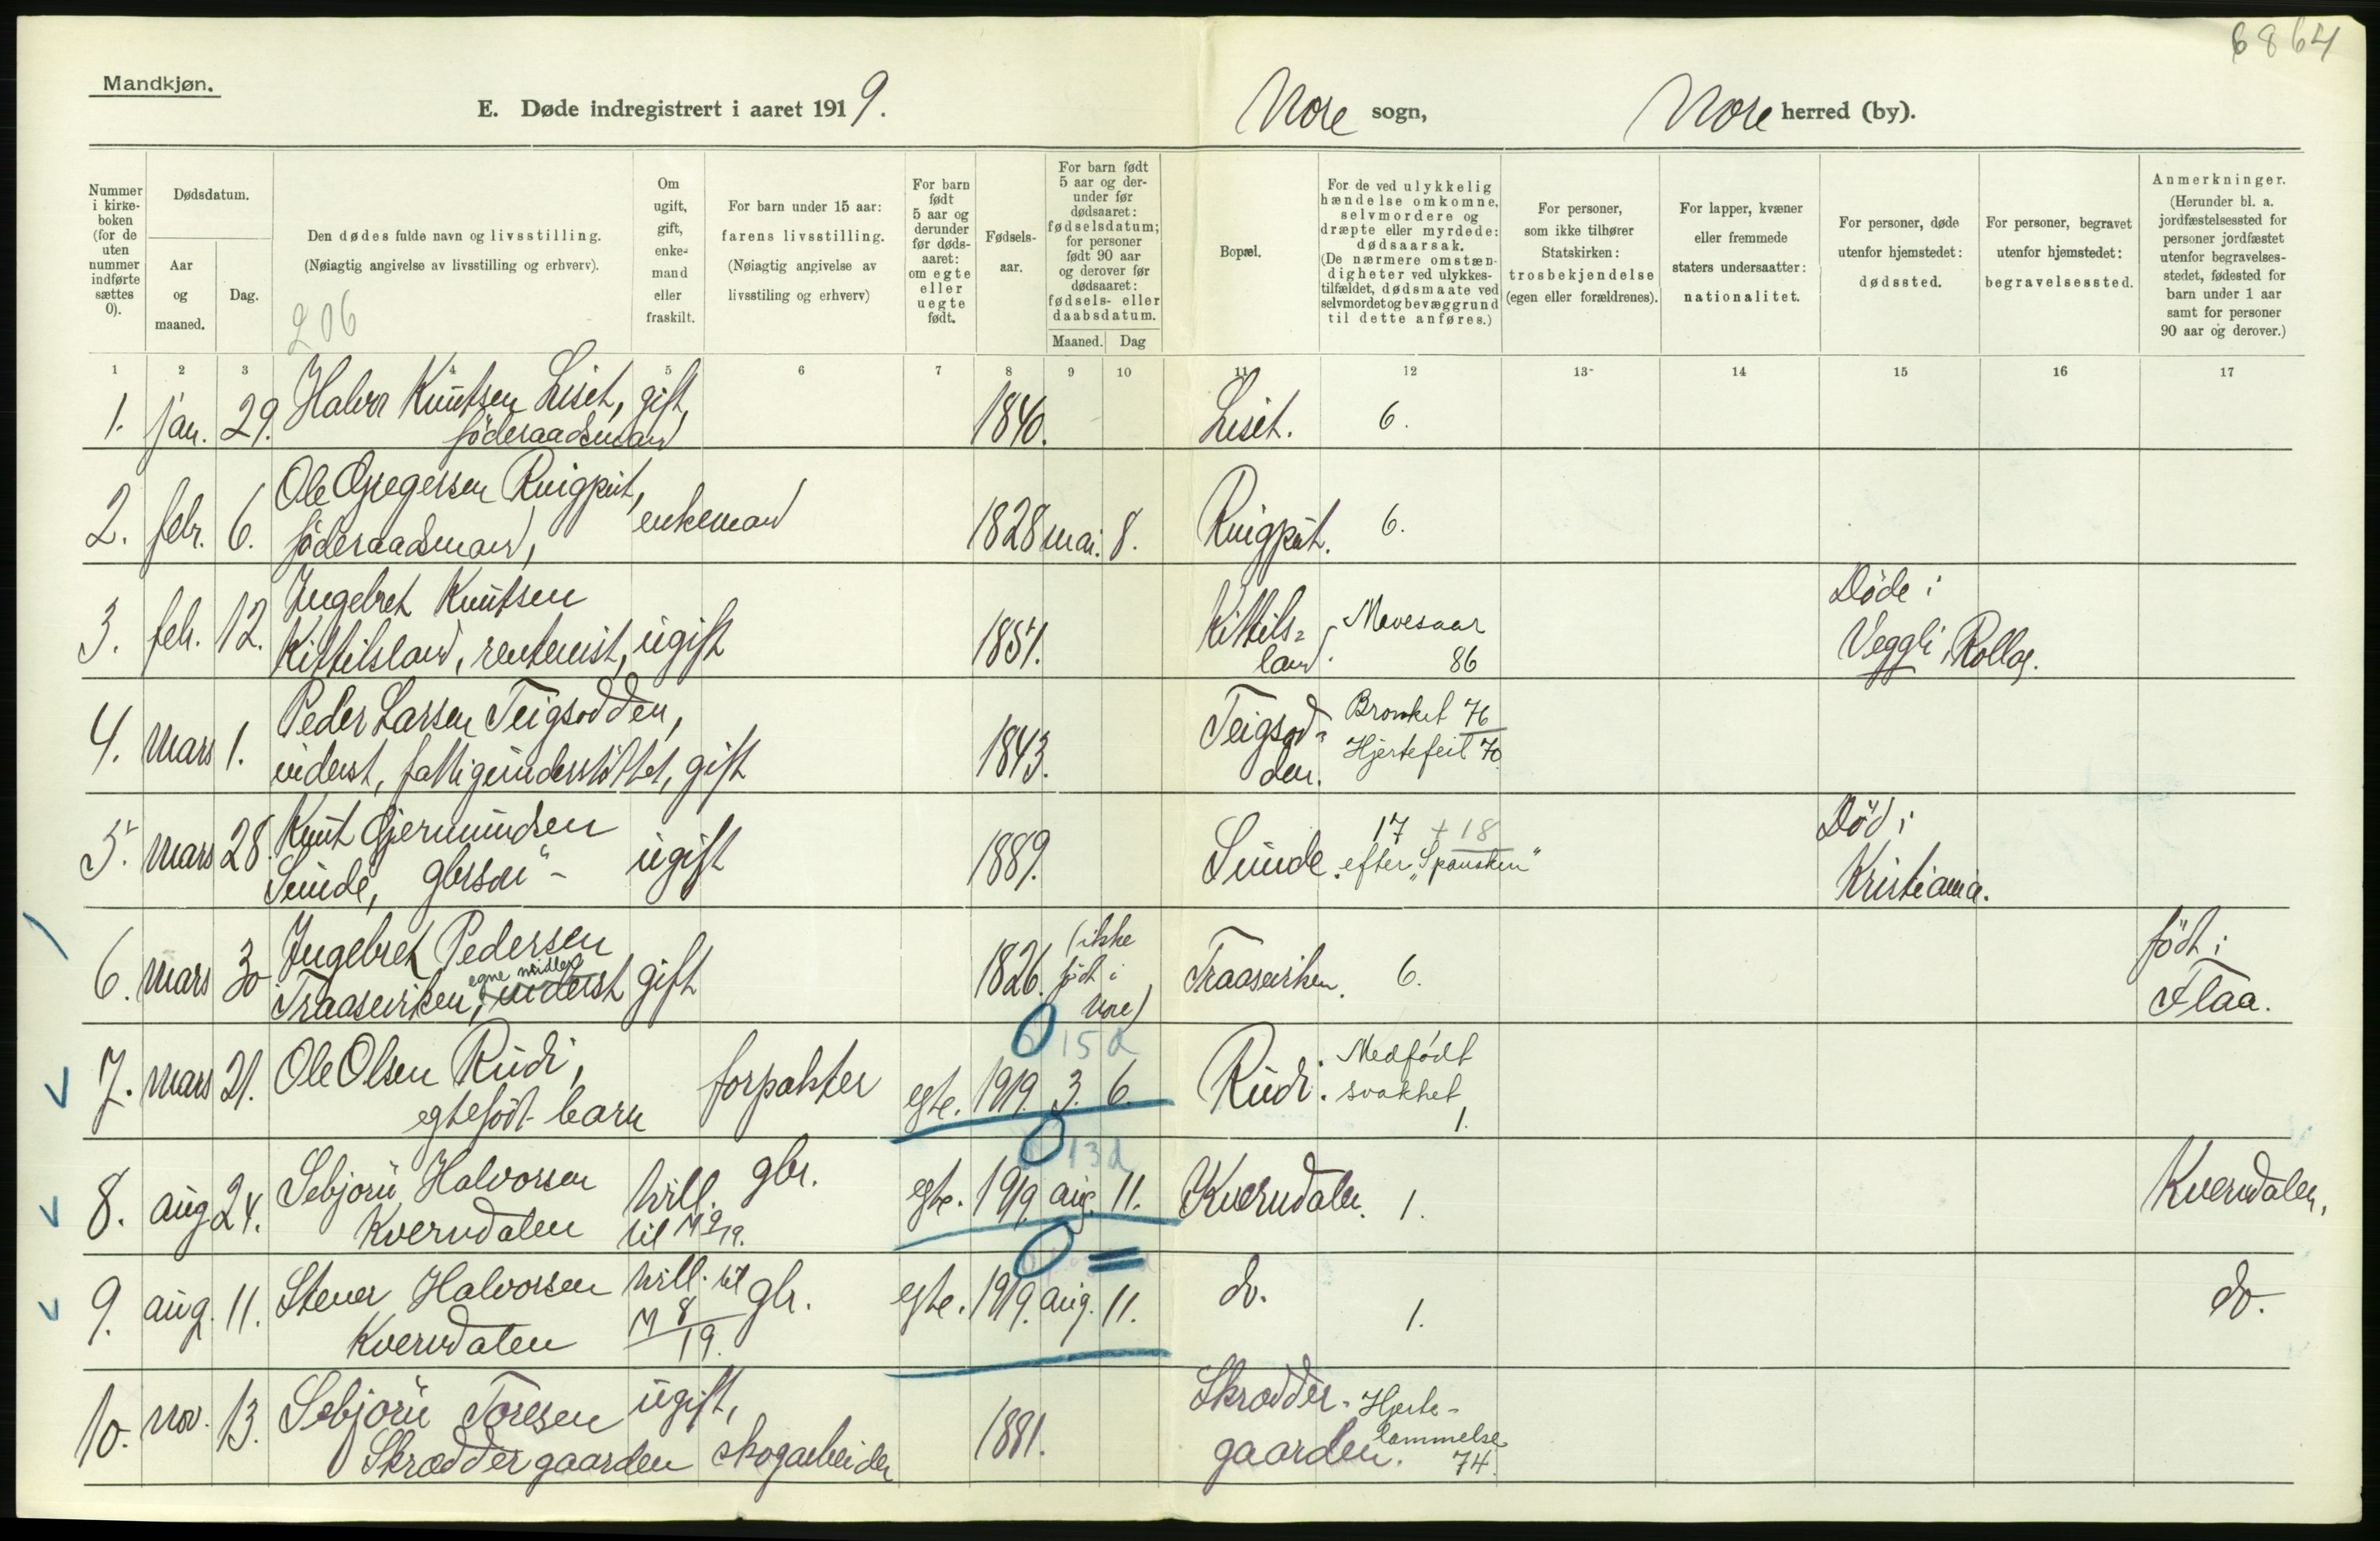 6864
Mandkjøn.
E. Døde indregistrert i aaret 1919.
Nore sogn,
Nore herred (by).
Nummer i kirke-boken (for de uten nummer indførte sættes 0).
Dødsdatum.
Aar og maaned.
Dag.
Den dødes fulde navn og livsstilling.
(Nøiagtig angivelse av livsstilling og erhverv).
206
Om ugift, gift, enke-mand eller fraskilt.
For barn under 15 aar: farens livsstilling.
(Nøiagtig angivelse av livsstiling og erhverv)
For barn født 5 aar og derunder før døds-aaret: om egte eller uegte født.
Fødsels-aar.
For barn født 5 aar og der-under før dødsaaret: fødselsdatum; for personer født 90 aar og derover før dødsaaret: fødsels- eller daabsdatum.
Maaned. Dag
Bopæl.
For de ved ulykkelig hændelse omkomne, selvmordere og dræpte eller myrdede: dødsaarsak.
(De nærmere omstæn-digheter ved ulykkes-tilfældet, dødsmaate ved selvmordet og bevæggrund til dette anføres.)
For personer, som ikke tilhører Statskirken: trosbekjendelse (egen eller forældrenes).
For lapper, kvæner eller fremmede staters undersaatter: nationalitet.
For personer, døde utenfor hjemstedet: dødssted.
For personer, begravet utenfor hjemstedet: begravelsessted.
Anmerkninger.
(Herunder bl. a. jordfæstelsessted for personer jordfæstet utenfor begravelses-stedet, fødested for barn under 1 aar samt for personer 90 aar og derover.)
1 2 3 4 5 6 7 8 9 10 11 12 13 14 15 16 17
1. jan. 29. Halvor Knutsen Liset, gift, 1840. Liset. 6.
føderaadsmand
2. febr. 6. Ole Gregersen Ruigpüt, enkemand 1828 mai. 8. Ruigpüt. 6.
føderaadsmand,
3. feb. 12. Ingebret Knutsen 1851. Kittils= Mavesaar Døde i
Kittilsland, rentenist, ugift land. 86 Veggli, Rollag.
4. mars 1. Peder Larsen Teigsodden, 1843. Teigsod= Bronkit 76
inderst, fattigunderstøttet, gift den. Hjertefeil 70.
5. mars 28. Knut Gjermundsen ugift 1889. Sunde. 17 + 18 Død i
Sunde, gbrsøn - efter "Spansken" Kristiania.
6. mars 30 Ingebret Pedersen 1826. (ikke født i Nore) Traaseviken. 6. født i
Traaseviken, egne midler inderst gift Flaa.
0 15 d
7. mars 21. Ole Olsen Rudi, forpakter egte. 1919. 3. 6. Rudi. Medfødt
egtefødt barn svakhet 1.
0 13 d
8. aug 24. Sebjørn Halvorsen tvill. gbr. egte. 1919. aug. 11. Kverndalen. 1. Kverndalen.
Kverndalen til M 9/19.
0
9. aug. 11. Stener Halvorsen tvill. til gbr. egte. 1919. aug. 11. do. 1. do.
Kverndalen M 8/19.
10. nov. 13. Sebjørn Toresen ugift, 1881. Skrædder- Hjerte-
Skræddergaarden skogarbeider gaarden. lammelse 74.